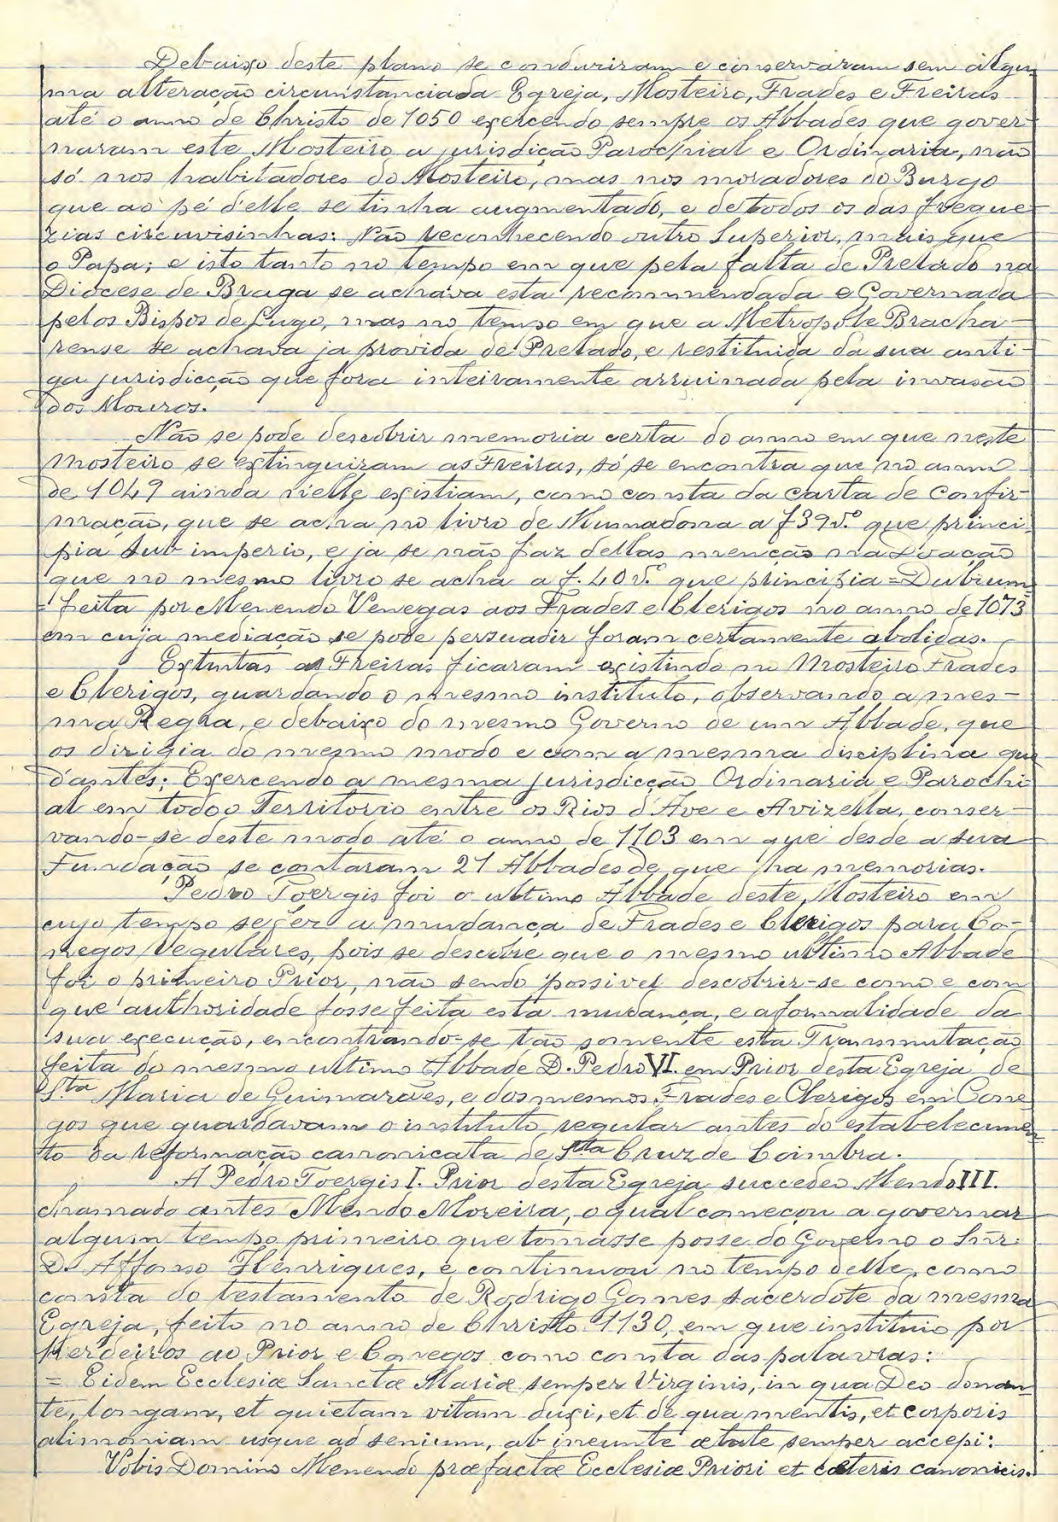 Debaixo deste plano se conduziram e conservaram sem algu
ma alteração circunstanciada Egreja, Mosteiro, Frades e Freiras
até o anno de Christo de 1050 exercendo sempre os Abbades que gover-
naram este Mosteiro a jurisdição Parochial e Ordinaria, não
só nos habitadores do Mosteiro, mas nos moradores do Burgo
que ao pé d'elle se tinha augmentado, e de todos os das fregue-
zias circuvisinhas: Não reconhecendo outro Superior, mais que
o Papa; e isto tanto no tempo em que pela falta de Prelado na
Diocese de Braga se achava esta recommendada e Governada
pelos Bispos de Lugo, mas no tempo em que a Metropole Bracha-
rense se achava ja provida de Prelado, e restituida da sua anti-
ga jurisdicção que fora inteiramente arruinada pela invasão
dos Mouros.
Não se pode descobrir memoria certa do anno em que neste
Mosteiro se extinguiram as Freiras, só se encontra que no anno
de 1049 ainda n'elle existiam, como consta da carta de confir-
mação, que se acha no livro de Mumadona a f 39 v.º que princi-
pia Sub imperio, e ja se não faz dellas menção na Doação
que no mesmo livro se acha a f. 40 v.º que principia = Dubium
= feita por Menendo Venegas aos Frades e Clerigos no anno de 1073
em cuja mediação se pode persuadir foram certamente abolidas.
Extintas as Freiras ficaram existindo no Mosteiro Frades
e Clerigos, guardando o mesmo instituto, observando a mes-
ma Regra, e debaixo do mesmo Governo de um Abbade, que
os dirigia do mesmo modo e com a mesma disciplina que
d'antes; Exercendo a mesma jurisdicção Ordinaria e Parochi-
al em todo o Territorio entre os Rios d'Ave e Avizella, conser-
vando-se deste modo até o anno de 1103 em que desde a sua
Fundação se contaram 21 Abbades de que ha memorias.
Pedro Toergis foi o ultimo Abbade deste Mosteiro em
cujo tempo se fez a mudança de Frades e Clerigos para Co-
negos Regulares, pois se descobre que o mesmo ultimo Abbade
foi o primeiro Prior, não sendo possivel descobrir-se como e com
que authoridade fosse feita esta mudança, e a formalidade da
sua execução, encontrando-se tão somente esta Transmutação
feita do mesmo ultimo Abbade D. Pedro VI. em Prior desta Egreja de
Sta Maria de Guimarães, e dos mesmos Frades e Clerigos em Cone-
gos que guardavam o instituto regular antes do estabelecimen-
to da reformação canonicata de Sta Cruz de Coimbra.
A Pedro Toergis I. Prior desta Egreja succedeo Mendo III.
chamado antes Mendo Moreira, o qual começou a governar
algum tempo primeiro que tomasse posse do Governo o Snr.
D. Affonso Henriques, e continuou no tempo delle, como
consta do testamento de Rodrigo Gomes sacerdote da mesma
Egreja, feito no anno de Christo 1130, em que instituio por
Herdeiros ao Prior e Conegos como consta das palavras:
= Eidem Ecclesiæ Sanctæ Mariæ semper Virginis, in qua Deo donan-
te, longam, et quietam vitam duxi, et de qua mentis, et corporis
alimoniam usque ad senium, ab ineunte ætate semper accepi:
Vobis Domino Menendo præfactæ Ecclesiæ Priori et cæteris canonicis.